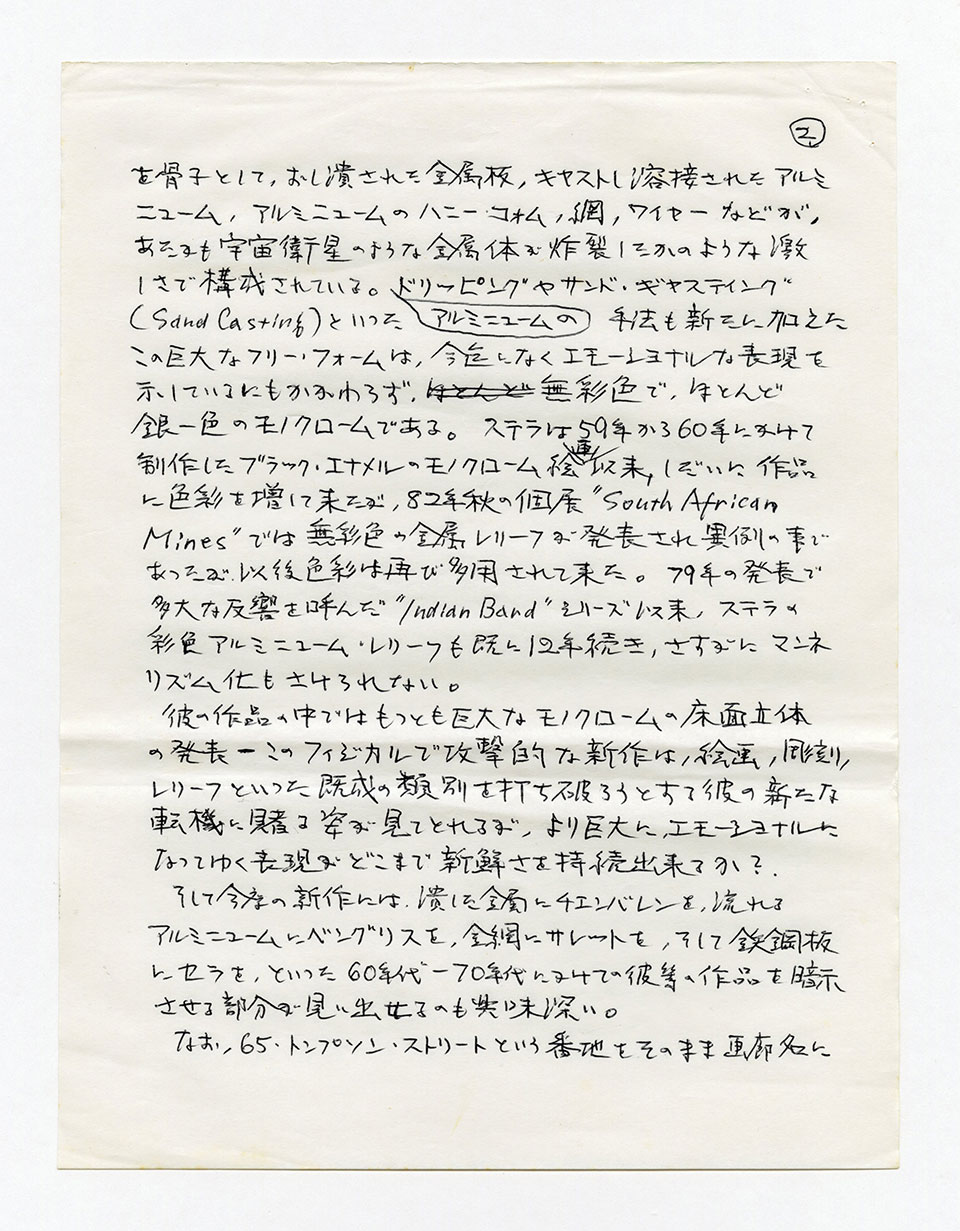 2
を骨子として,おし潰された金属板,キャストし溶接されたアルミ
ニューム,アルミニュームのハニー・コォム,網,ワイヤーなどが,
あたかも宇宙衛星のような金属体が炸裂したかのような激
しさで構成されている。ドリッピングやサンド・ギャスティング
(Sand Casting)といった アルミニュームの 手法も新たに加えた
この巨大なフリー・フォームは,今迄になくエモーショナルな表現を
示しているにもかかわらず,ほとんど無彩色で,ほとんど
銀一色のモノクロームである。ステラは59年から60年にかけて
制作したブラック・エナメルのモノクローム絵画以来,しだいに作品
に色彩を増して来たが,82年秋の個展"South African
Mines"では無彩色の金属レリーフが発表され異例の事で
あったが以後色彩は再び多用されて来た。79年の発表で
多大な反響を呼んだ"Indian Bard"シリーズ以来,ステラの
彩色アルミニューム・レリーフも既に12年続き,さすがにマンネ
リズム化もさけられない。
彼の作品の中ではもっとも巨大なモノクロームの床面立体
の発表ーこのフィジカルで攻撃的な新作は,絵画,彫刻,
レリーフといった既成の類別を打ち破ろうとする彼の新たな
転機に賭る姿が見てとれるが,より巨大に,エモーショナルに
なってゆく表現がどこまで新鮮さを持続出来るか?.
そして今度の新作には,潰した金属にチエンバレンを,流れる
アルミニュームにベングリスを,金網にサレットを,そして鉄鋼板
にセラを,といった60年代ー70年代にかけての彼等の作品を暗示
させる部分が見い出せるのも興味深い。
なお,65・トンプソン・ストリートという番地をそのまま画廊名に